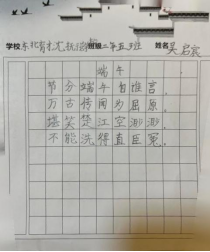 学校东北育才沈抚 班级二年五班 姓名吴启宸
端午
节分端午自谁言,
万古传闻为屈原。
堪笑楚江空渺渺,
不能洗得直臣冤。